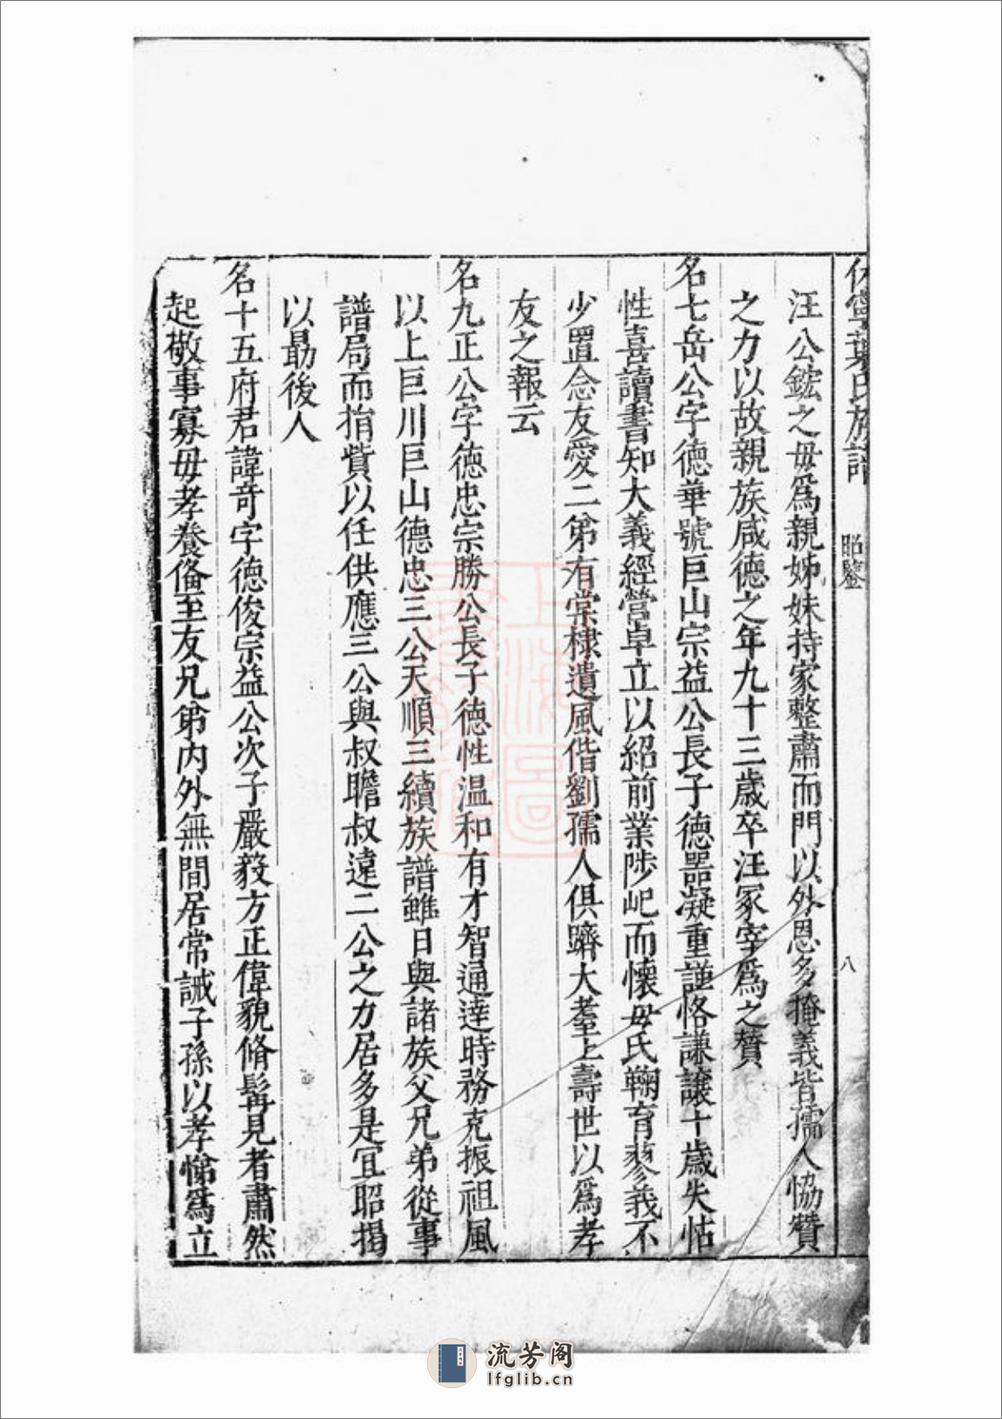 休寧葉氏族譜　昭鑒　八
汪公鋐之毋爲親姊妹持家整肅而門以外恩多掩義皆孺人恊贊
之力以故親族咸德之年九十三歲卒汪冢宰爲之贊
名七岳公字德華號巨山宗益公長子德噐凝重謹恪謙讓十歲失怙
性喜讀書知大義經營卓立以紹前業陟屺而懷毋氏鞠育蓼義不
少置念友愛二弟有棠棣遺風偕劉孺人俱躋大耋上壽世以爲孝
友之報云
名九正公字德忠宗勝公長子德性温和有才智通達時務克振祖風
以上巨川巨山德忠三公天順三續族譜雖日與諸族父兄弟從事
譜局而捐貲以任供應三公與叔瞻叔遠二公之力居多是冝昭揭
以勗後人
名十五府君諱竒字德俊宗益公次子嚴毅方正偉貌脩髯見者肅然
起敬事寡毋孝養偹至友兄弟内外無間居常誡子孫以孝悌爲立
上海圖書館藏
流芳阁
lfglib.cn